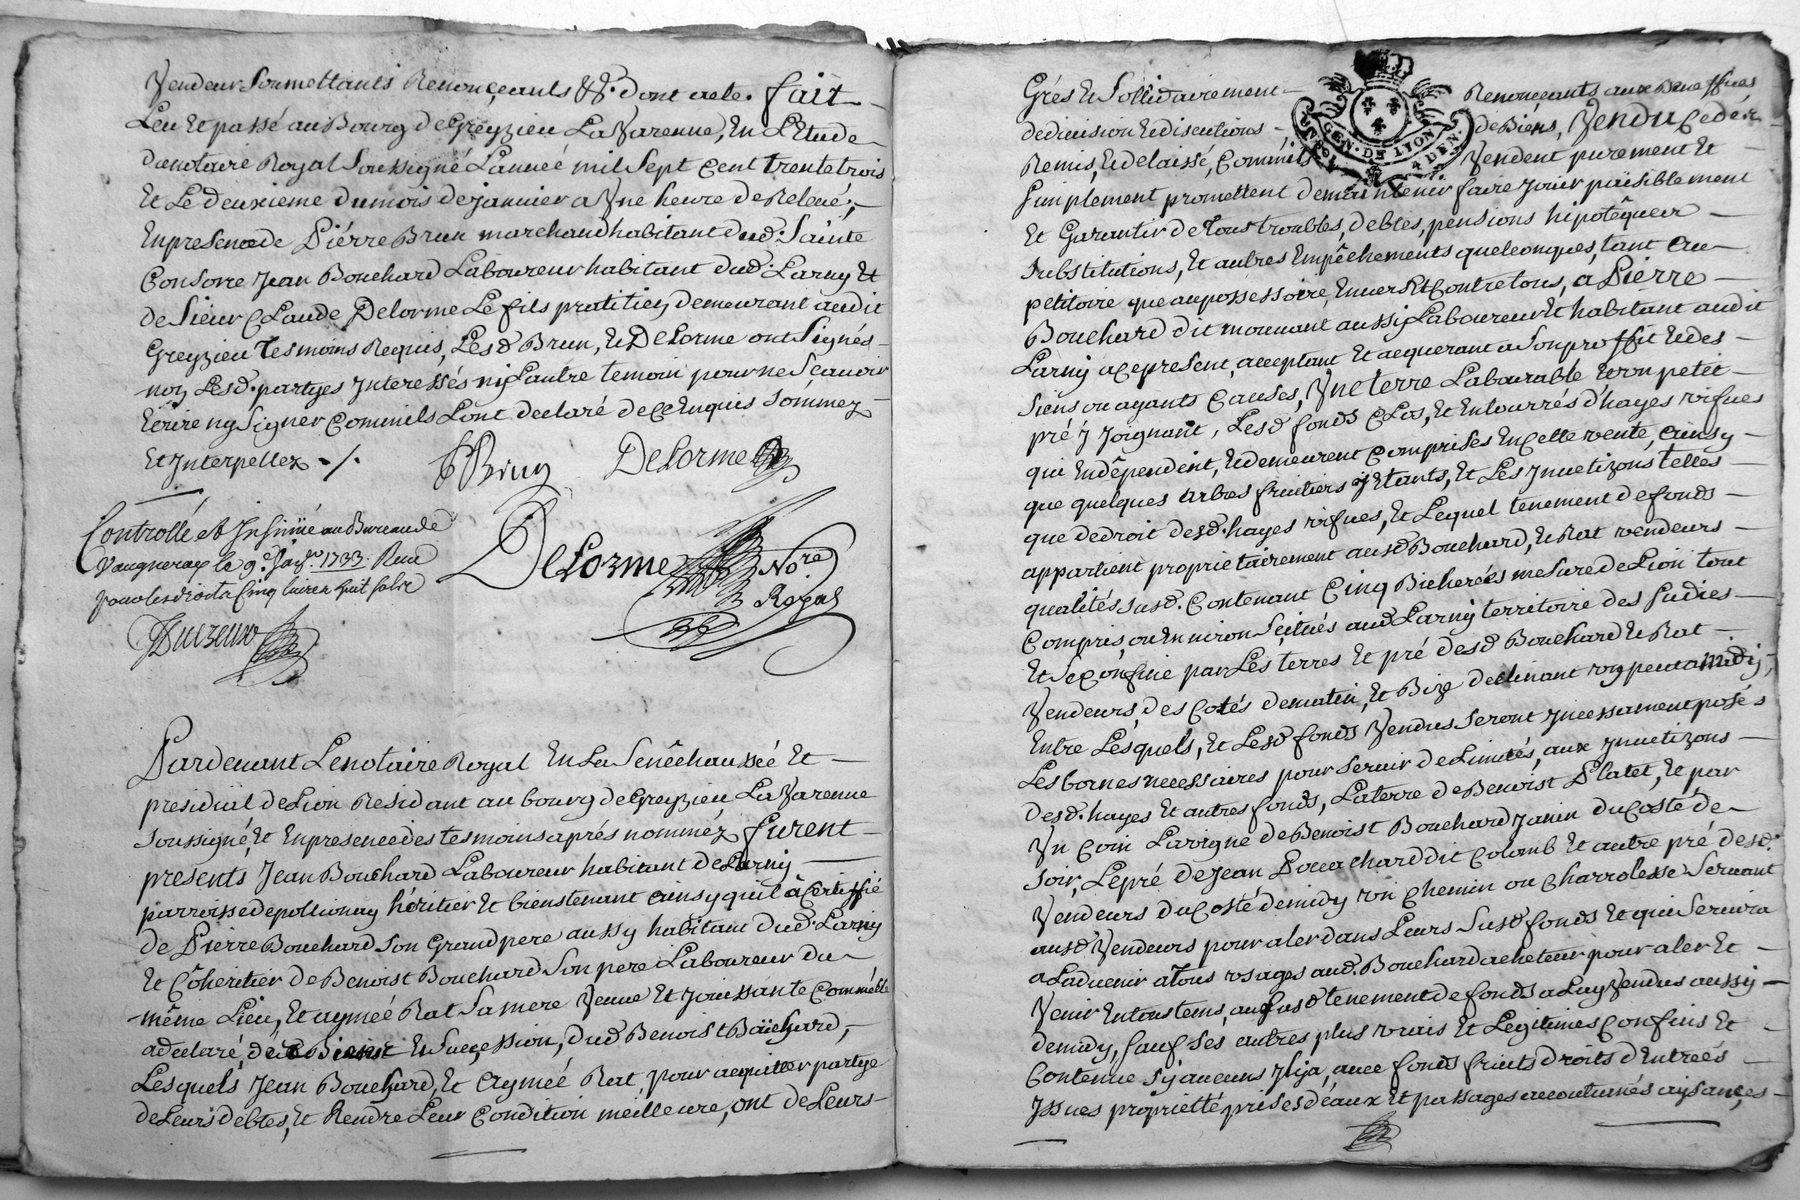 Vendeur Soumettants Renonçeants &c. dont acte. fait
Leu Et passé au Bourg de Greyzieu La Varenne, En L'Etude
du notaire Royal Soussigné L'anneé mil Sept Cent trente trois
Et Le deuxieme du mois de janvier a Une heure de Releveé;
En presence de Piérre Brun marchand habitant dud. Sainte
Consorce Jean Bouchard Laboureur habitant dud. Larny Et
de Sieur Claude Delorme Le fils pratitien demeurant audit
Greyzieu Tesmoins Requis, Lesd Brun, Et DeLorme ont Signés
non Lesd. partyes Interessés ny L'autre temoin pour ne Sçavoir
Ecrire ny Signer Comm'ils L'ont declaré de Ce Enquis Sommez
Et Interpellez ./.
PBrun DeLorme
Controllé et Insinüé au Bureau de
Vaugneray le 9e. Janr. 1733. Receu
pour les droits Cinq livres huit sols
DeLorme Nore
Royal
Pardevant Le notaire Royal En La Senêchausseé Et
presidiäl de Lion Residant au bourg de Greyzieu La Varenne
Soussigné, Et En presence des tesmoins aprés nommêz furent
presents Jean Bouchard Laboureur habitant de Larny
parroisse de pollionay héritier Et bienstenant ainsy quil à Certiffié
de Pierre Bouchard Son Grand pere aussy habitant dud. Larny
Et Côheritier de Benoist Bouchard Son pere Laboureur du
même Lieu, Et aymeé Rat Sa mere Veuve Et Joüissante Comm'elle
a declaré, de Bien Et Succession, dud Benoist Bouchard,
Lesquels Jean Bouchard, Et Aymeé Rat pour acquitter partye
de Leurs debtes, Et Rendre Leur Condition meilleure, ont de Leurs
GEN. DE LYON
4 DEN.
Grés Et Sollidairement Renonçeants aux Beneffices
de division Et discutions de Biens, Vendu Cedé
Remis, Et delaissé, Comm'ils Vendent purement Et
Simplement promettent de maintenir faire Joüir paisiblement
Et Garantir de Tous troubles, debtes, pensions hipotêques
Substitutions, Et autres Empêchements quelconques, tant au
petitoire que au possessoire, Envers Et Contre tous, a Pierre
Bouchard dit mouuant aussy Laboureur Et habitant audit
Larny a Ce present, acceptant Et acquerant a Son proffit Et des
Siens ou ayants Causes, Une terre Labourable Et un petit
pré y Joignant, Lesd fonds Clos, Et Entourrés d'hayes vifues
qui En dêpendent, Et demeurent Comprises En Cette vente, ainsy
que quelques arbres fruitiers y Etants, Et Les Inuetizons telles
que de droit desd. hayes vifues, Et Lequel tenement de fonds
appartient proprietairement ausd Bouchard, Et Rat vendeurs
qualités Susd. Contenant Cinq Bicherées mesure de Lion tout
Compris, ou Enuiron Scitués aud Larny territoire des Sudies
Et Se Confine par Les terres Et pré desd Bouchard Et Rat
Vendeurs, des Cotés de matin, Et Bize declinant un peu a midy,
Entre Lesquels, Et Lesd fonds Vendus Seront Incessament posés
Les bornes necessaires pour Seruir de Limites, aux Inuetizons
desd. hayes Et autres fonds, La terre de Benoist Platet, Et par
Un Coin La vigne de Benoist Bouchard Janin du Costé de
Soir, Le pré de Jean Bouchard dit Colomb Et autre pré desd.
Vendeurs du Costé de midy un Chemin ou Charrolesse Seruant
ausd Vendeurs pour aler dans Leurs Susd fonds Et qui Seruira
a L'aduenir a Tous usages aud. Bouchard acheteur pour aler Et
Venir En tous tems, au susd tenement de fonds a Luy Vendus aussy
de midy, Sauf Ses autres plus vrais Et Legitimes Confins Et
Contenue Sy aucuns Il y a, auec fonds fruits droits d'Entreés
Issues proprietté prises d'eaux Et passages accoutumés aysances